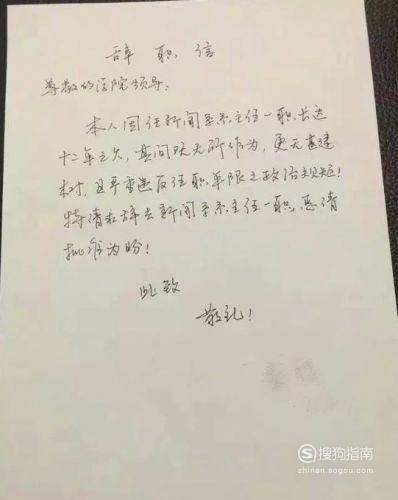 辞职信
尊敬的法院领导：
本人因任新闻系系主任一职，长达
十二年之久，其间既无所作为，更无甚建
树，且严重违反任职年限之政治规矩！
特请求辞去新闻系系主任一职，恳请
批准为盼！
此致
敬礼！
搜狗指南
zhinan.sogou.com